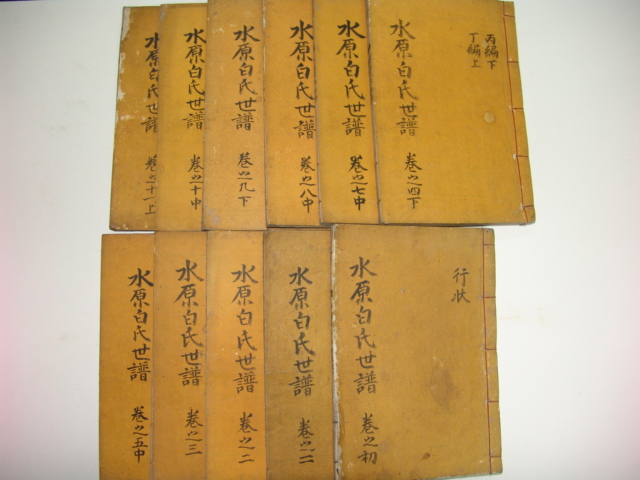 水原白氏世譜 卷之十一上
水原白氏世譜 卷之十中
水原白氏世譜 卷之九下
水原白氏世譜 卷之八中
水原白氏世譜 卷之七中
水原白氏世譜 卷之四下
丙編下
丁編上
水原白氏世譜 卷之五中
水原白氏世譜 卷之三
水原白氏世譜 卷之二
水原白氏世譜 卷之二
水原白氏世譜 卷之初
行狀